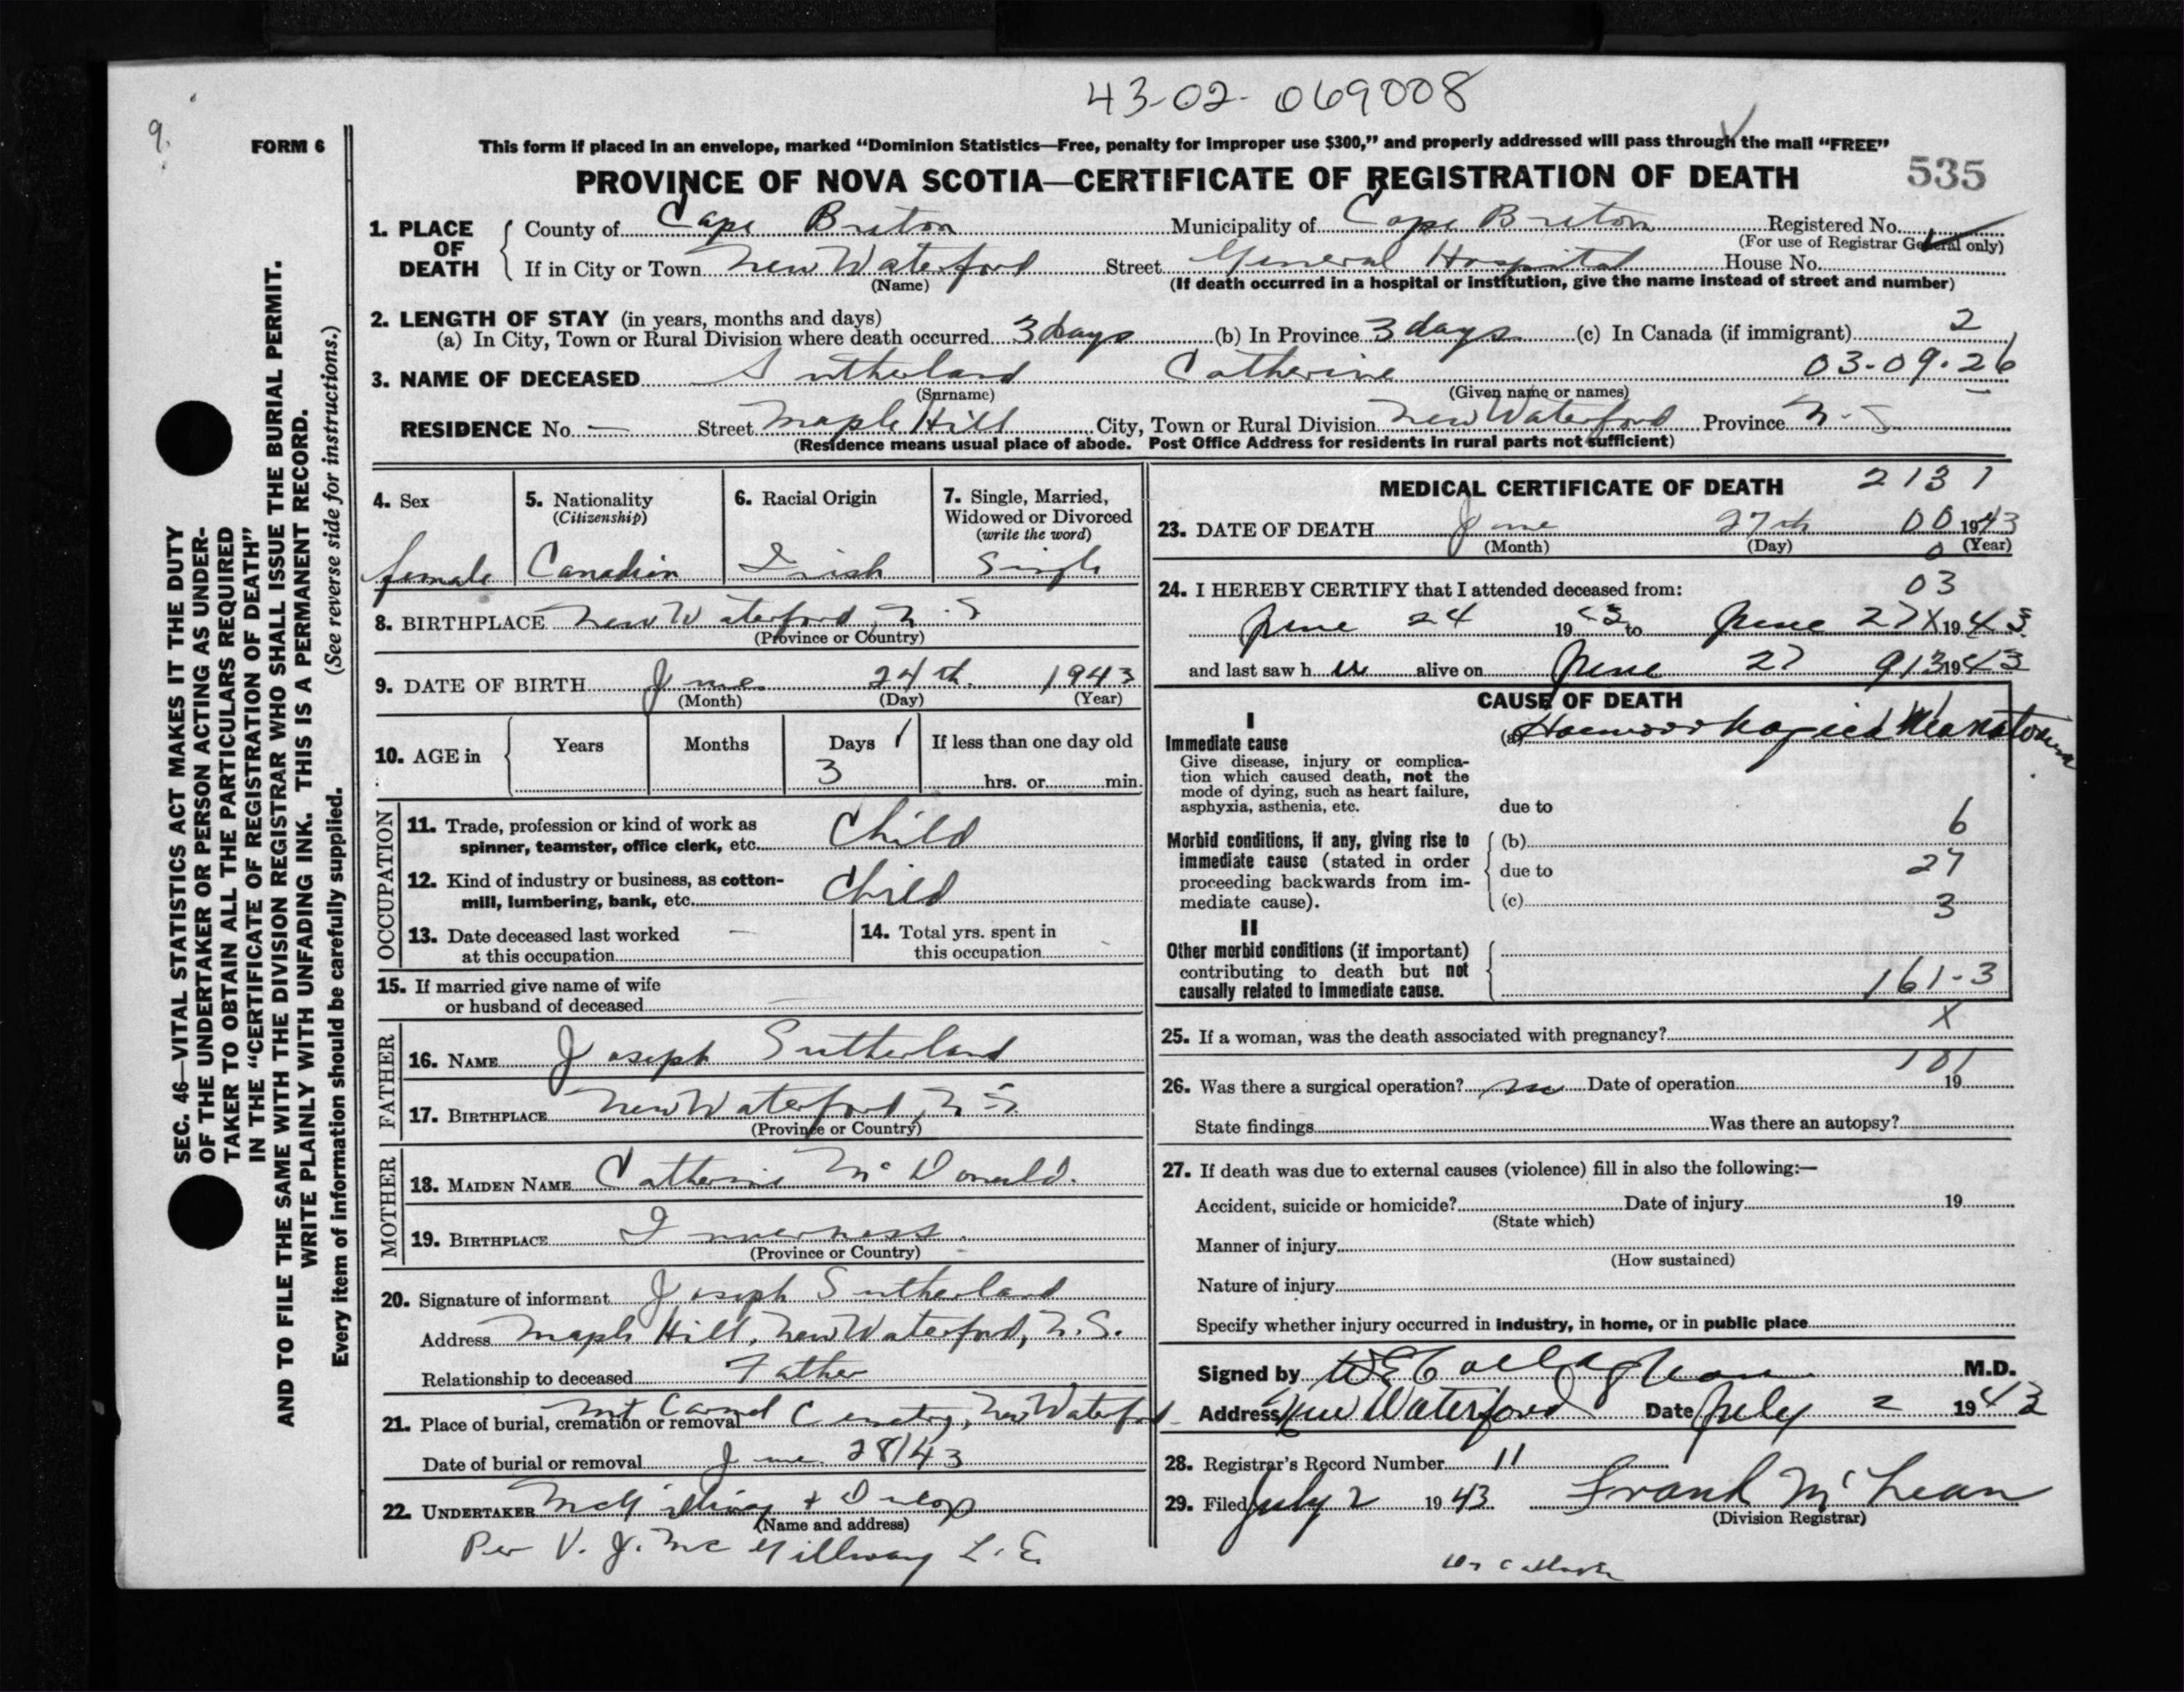 43-02-069008
9.
FORM 6
This form if placed in an envelope, marked “Dominion Statistics—Free, penalty for improper use $300,” and properly addressed will pass through the mail “FREE”
PROVINCE OF NOVA SCOTIA—CERTIFICATE OF REGISTRATION OF DEATH 535
1. PLACE OF DEATH
County of Cape Breton Municipality of Cape Breton Registered No.
(For use of Registrar General only)
If in City or Town New Waterford Street General Hospital House No.
(Name) (If death occurred in a hospital or institution, give the name instead of street and number)
2. LENGTH OF STAY (in years, months and days)
(a) In City, Town or Rural Division where death occurred 3 days (b) In Province 3 days (c) In Canada (if immigrant) 2
3. NAME OF DECEASED Sutherland Catherine 03-09-26
(Surname) (Given name or names)
RESIDENCE No. — Street Maple Hill City, Town or Rural Division New Waterford Province N.S.
(Residence means usual place of abode. Post Office Address for residents in rural parts not sufficient)
SEC. 46—VITAL STATISTICS ACT MAKES IT THE DUTY
OF THE UNDERTAKER OR PERSON ACTING AS UNDER-
TAKER TO OBTAIN ALL THE PARTICULARS REQUIRED
IN THE “CERTIFICATE OF REGISTRATION OF DEATH”
AND TO FILE THE SAME WITH THE DIVISION REGISTRAR WHO SHALL ISSUE THE BURIAL PERMIT.
WRITE PLAINLY WITH UNFADING INK. THIS IS A PERMANENT RECORD.
Every item of information should be carefully supplied. (See reverse side for instructions.)
4. Sex
female
5. Nationality
(Citizenship)
Canadian
6. Racial Origin
Irish
7. Single, Married,
Widowed or Divorced
(write the word)
Single
8. BIRTHPLACE New Waterford, N.S
(Province or Country)
9. DATE OF BIRTH June 24th 1943
(Month) (Day) (Year)
10. AGE in Years Months Days If less than one day old
3 hrs. or min.
OCCUPATION
11. Trade, profession or kind of work as
spinner, teamster, office clerk, etc. Child
12. Kind of industry or business, as cotton-
mill, lumbering, bank, etc. Child
13. Date deceased last worked
at this occupation
14. Total yrs. spent in
this occupation
15. If married give name of wife
or husband of deceased
FATHER
16. NAME Joseph Sutherland
17. BIRTHPLACE New Waterford, N.S.
(Province or Country)
MOTHER
18. MAIDEN NAME Catherine McDonald.
19. BIRTHPLACE Inverness.
(Province or Country)
20. Signature of informant Joseph Sutherland
Address Maple Hill, New Waterford, N.S.
Relationship to deceased Father
21. Place of burial, cremation or removal Mt Carmel Cemetery, New Waterford
Date of burial or removal June 28/43
22. UNDERTAKER McGillivray + Dunlop
(Name and address)
Per V. J. McGillivray L.E.
MEDICAL CERTIFICATE OF DEATH 2131
23. DATE OF DEATH June 27th 00 1943
(Month) (Day) 0 (Year)
24. I HEREBY CERTIFY that I attended deceased from: 03
June 24 1943 to June 27 X 1943
and last saw her alive on June 27 913 1943
CAUSE OF DEATH
I
Immediate cause
Give disease, injury or complica-
tion which caused death, not the
mode of dying, such as heart failure,
asphyxia, asthenia, etc.
(a) Haemorrhagica Neonatorum
due to
Morbid conditions, if any, giving rise to
immediate cause (stated in order
proceeding backwards from im-
mediate cause).
(b) 6
due to 27
(c) 3
II
Other morbid conditions (if important)
contributing to death but not
causally related to immediate cause.
161-3
25. If a woman, was the death associated with pregnancy? X
101
26. Was there a surgical operation? no Date of operation 19
State findings Was there an autopsy?
27. If death was due to external causes (violence) fill in also the following:—
Accident, suicide or homicide? Date of injury 19
(State which)
Manner of injury
(How sustained)
Nature of injury
Specify whether injury occurred in industry, in home, or in public place
Signed by Callaghan M.D.
Address New Waterford Date July 2 1943
28. Registrar's Record Number 11
29. Filed July 2 1943. Frank McLean
(Division Registrar)